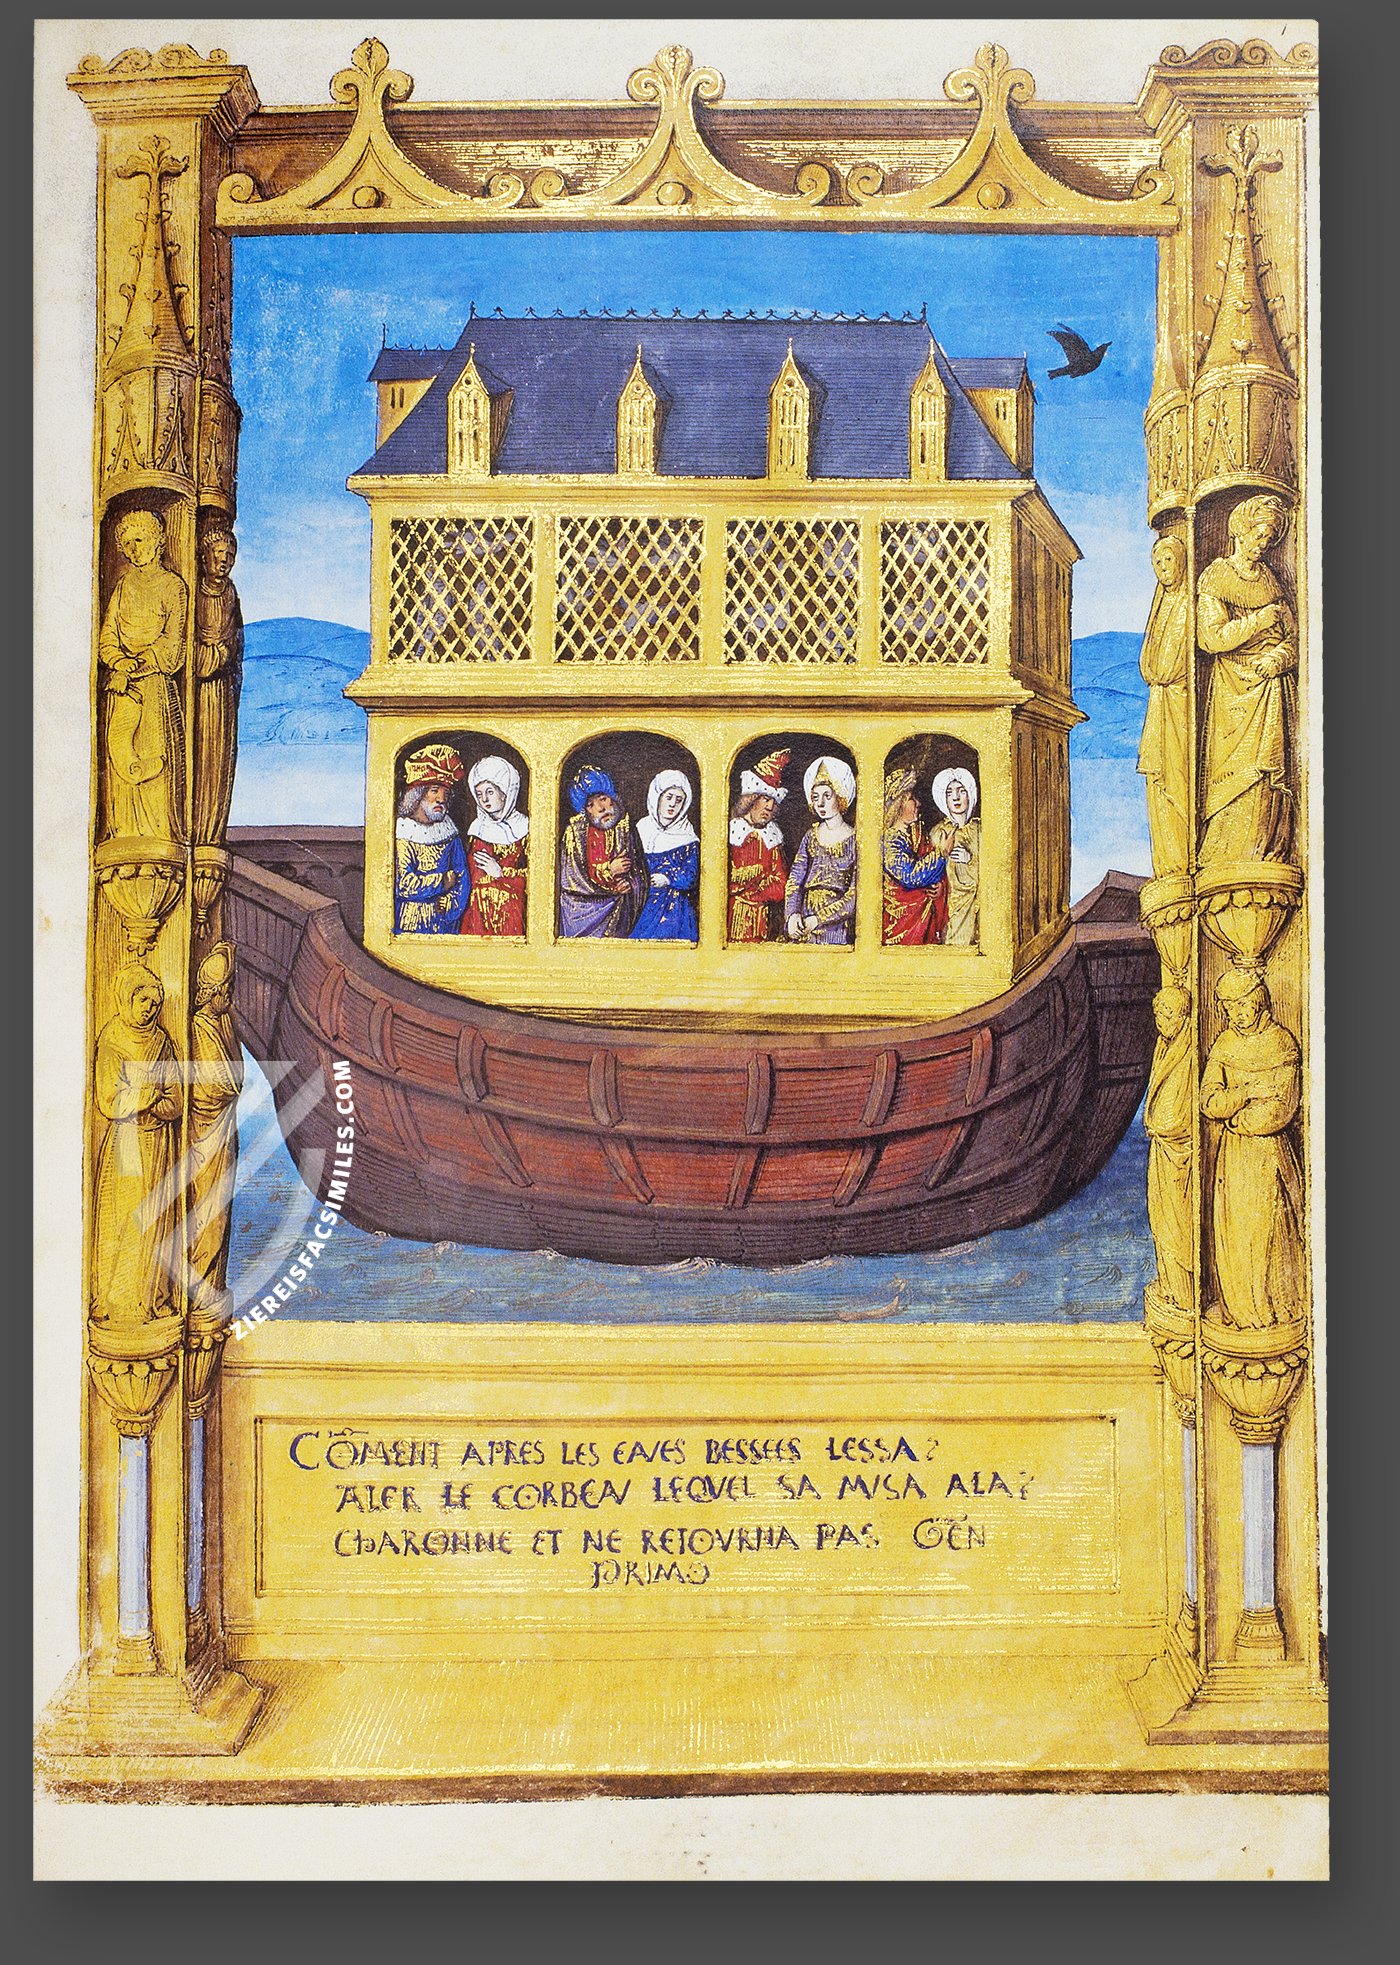 CŌMENT APRES LES EAVES BESSEES LESSA?
ALER LE CORBEAV LEQVEL SA MISA ALA?
CHARONNE ET NE RETOVRNA PAS GEN̄
PRIMO
ZIEREISFACSIMILES.COM